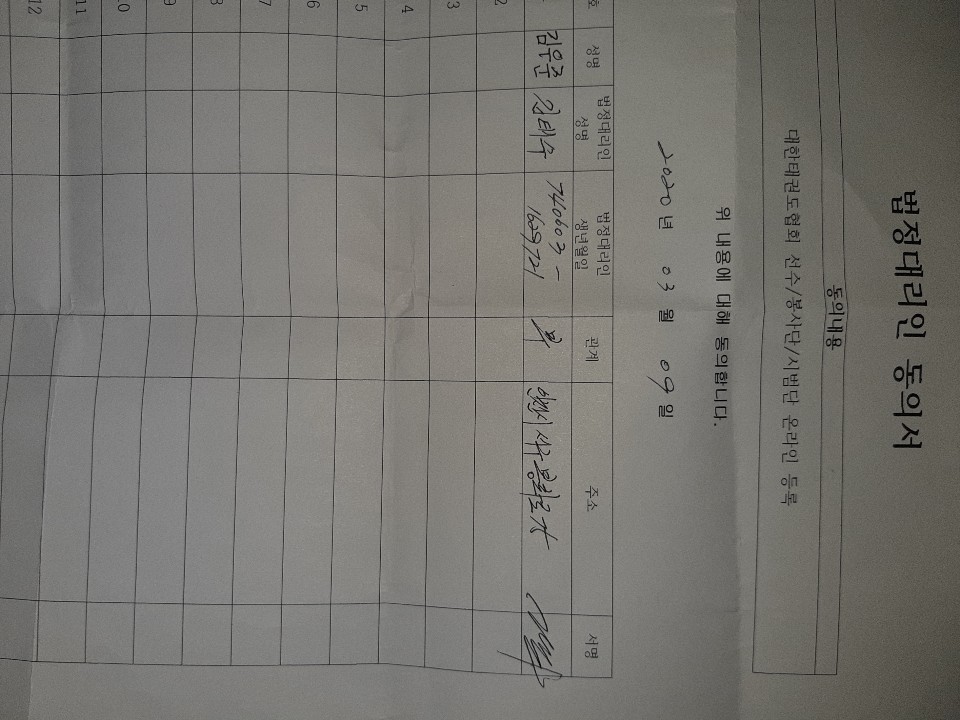 법정대리인 동의서
동의내용
대한태권도협회 선수/봉사단/시범단 온라인 등록
위 내용에 대해 동의합니다.
2020년 03월 09일
호 성명 법정대리인 성명 법정대리인 생년월일 관계 주소 서명
김우준 김태수 740603 - 1629721 부
2
3
4
5
6
7
8
9
10
11
12